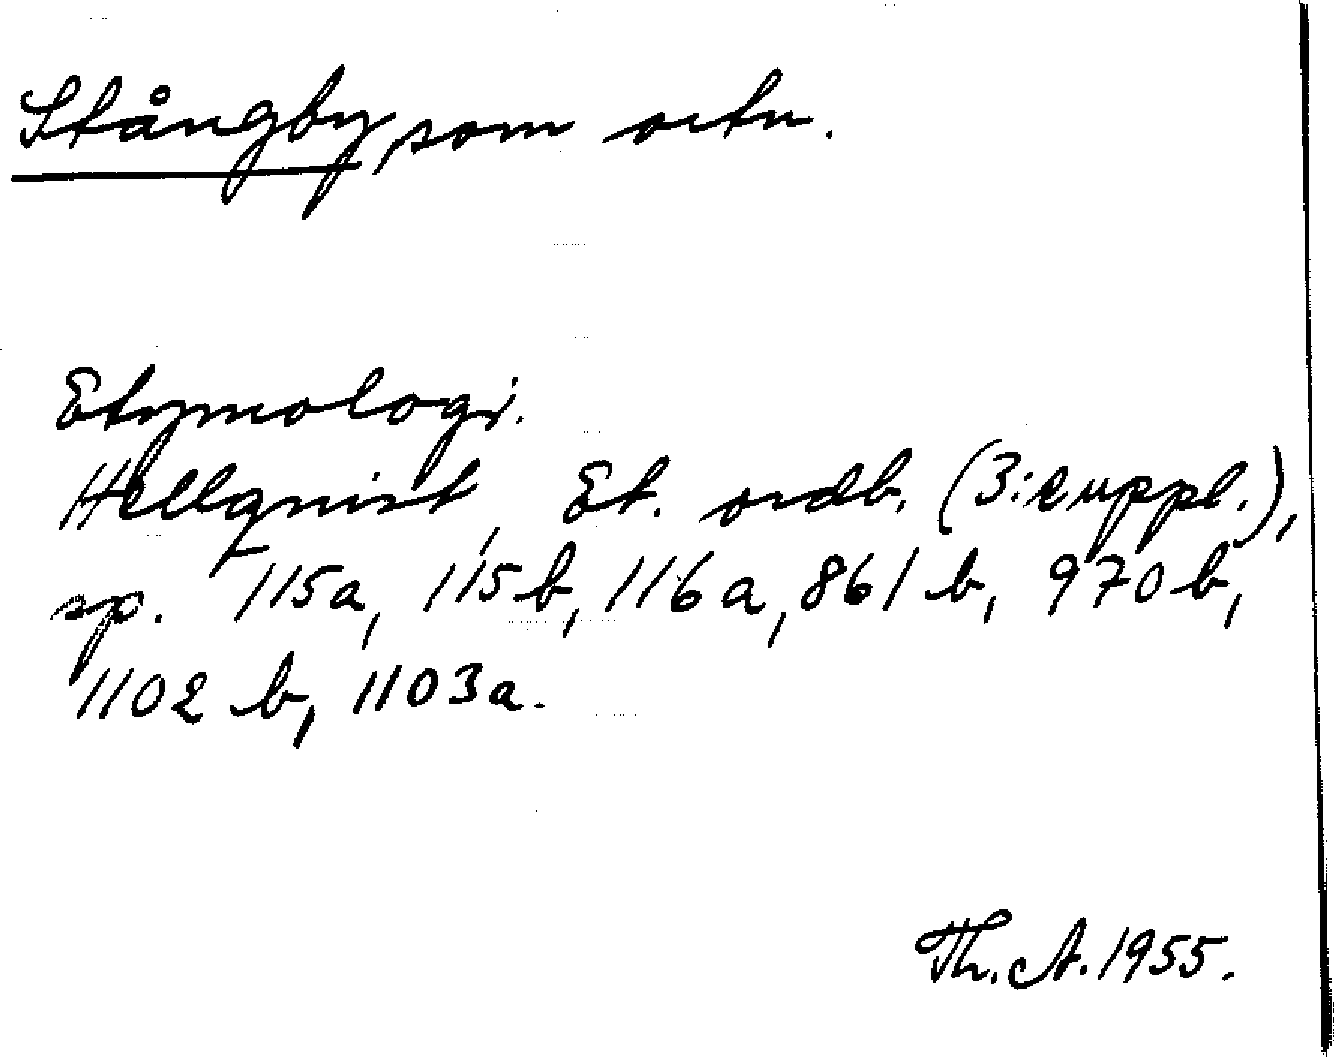 Stångby, som ortn.
Etymologi.
Hellquist, Et. ordb. (3:e uppl.),
sp. 115a, 115b, 116a, 861b, 970b,
1102b, 1103a.
Th. A. 1955.